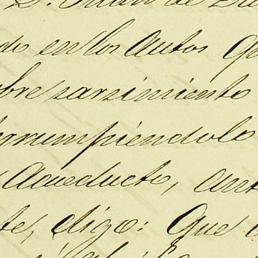 D. Juan de
dos en los autos que
bre resarcimiento
rrumpiéndolo
Acueducto, ant
te, digo: Que